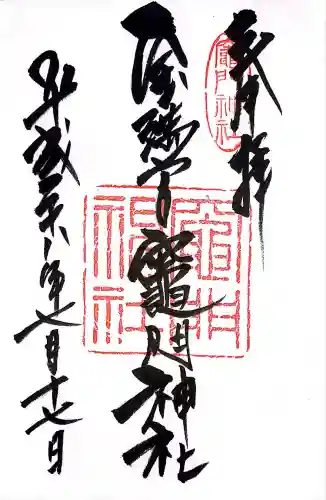 奉拝
竈門神社
寶満宮竈門神社
竈門神社
平成二十八年七月十七日